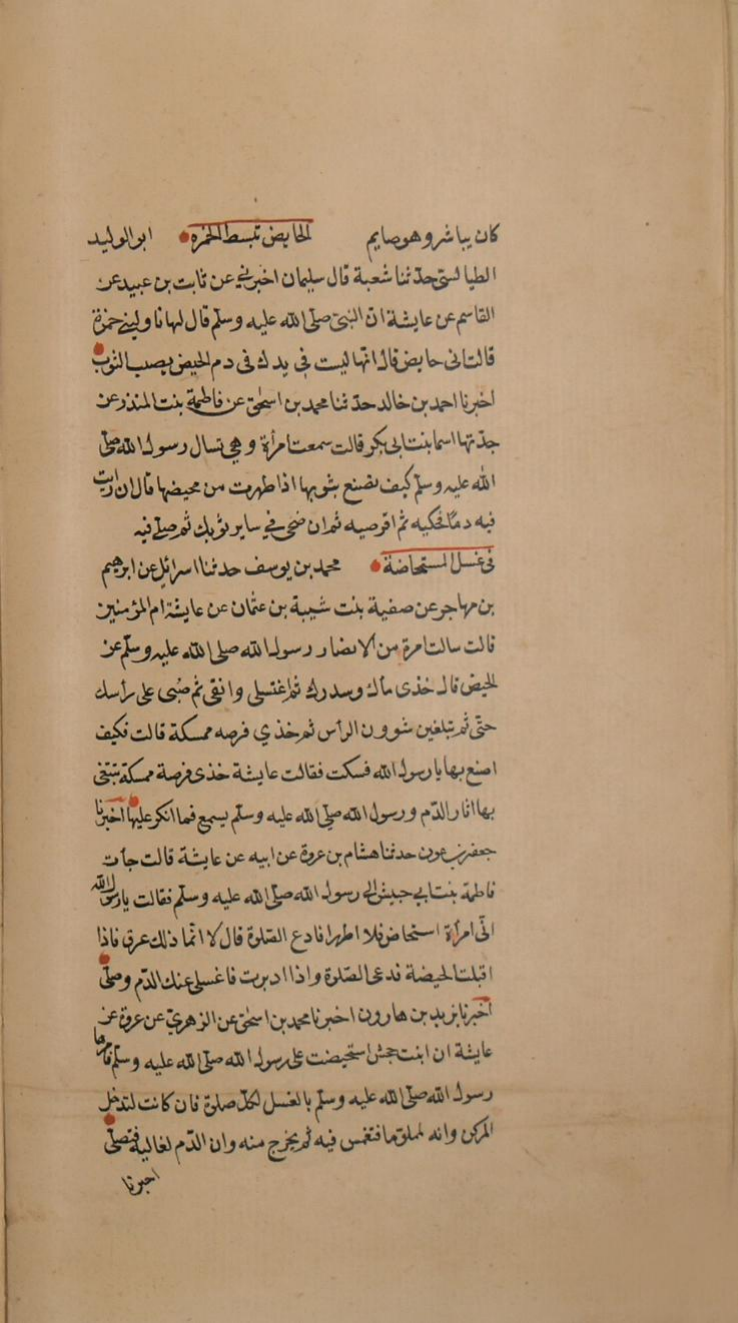 كان يباشر وهو صايم الحايض تبسط الخمرة ابو الوليد
الطيالسي حدثنا شعبة قال سليمان اخبرني عن ثابت بن عبيد عن
القاسم عن عايشة ان النبي صلى الله عليه وسلم قال لها ناوليني خمرة
قالت اني حايض قال انها ليست في يدك في دم الحيض يصيب الثوب
اخبرنا احمد بن خالد حدثنا محمد بن اسحق عن فاطمة بنت المنذر عن
جدتها اسما بنت ابي بكر قالت سمعت امرأة وهي تسال رسول الله صلى
الله عليه وسلم كيف تصنع بثوبها اذا طهرت من محيضها قال ان رايت
فيه دما فحكيه ثم اقرصيه ثم ان ضحى في ساير ثوبك ثم صلى فيه
في غسل المستحاضة محمد بن يوسف حدثنا اسرائل عن ابرهيم
بن مهاجر عن صفية بنت شيبة بن عثمان عن عايشة ام المؤمنين
قالت سالت امرة من الانصار رسول الله صلى الله عليه وسلم عن
الحيض قال خذى مآك وسدرك ثم اغتسلى وانقى ثم صبى على رأسك
حتى ثم تبلغين شوون الرأس ثم خذي فرصه ممسكة قالت فكيف
اصنع بها يا رسول الله فسكت فقالت عايشة خذى فرصة ممسكة تتبعى
بها اثار الدم ورسول الله صلى الله عليه وسلم يسمع فما انكر عليها اخبرنا
جعفر بن عون حدثنا هشام بن عروة عن ابيه عن عايشة قالت جأت
فاطمة بنت ابي حبيش الى رسول الله صلى الله عليه وسلم فقالت يا رسول الله
اني امرأة استحاض فلا اطهر افادع الصلوة قال لا انما ذلك عرق فاذا
اقبلت الحيضة فدعى الصلوة واذا ادبرت فاغسلى عنك الدم وصلى
اخبرنا يزيد بن هارون اخبرنا محمد بن اسحق عن الزهري عن عروة عن
عايشة ان ابنت جحش استحيضت على رسول الله صلى الله عليه وسلم فأمرها
رسول الله صلى الله عليه وسلم بالغسل لكل صلوة فان كانت لتدخل
المركن وانه لملو ما فتغمس فيه ثم يخرج منه وان الدم لغالبه فتصلى
اخبرنا